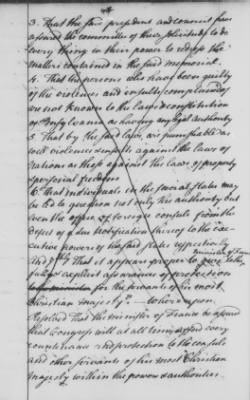 3. That the said president and council have
assured the committee of their solicitude to do
every thing in their power to redress the
matters contained in the said memorial.
4. That the persons who have been guilty
of the violences and insults complained of
are not known to the laws & constitution
of Pensylvania as having any legal authority
5. That by the said laws, are punishable as
well violences & insults against the laws of
nations as those against the laws of property
& personal freedom
6. That individuals in the several states may
be led to question not only the authority but
even the office of foreign consuls from the
defect of a due notification thereof to the exe-
cutive powers of the said states respectively
And 7thly That it appears proper to give
minister of France
full & explicit assurances of protection
for the servants of his most
Christian majesty whereupon
Resolved That the minister of France be assured
that Congress will at all times afford every
countenance and protection to the consuls
and other servants of his most Christian
majesty within their powers & authorities.